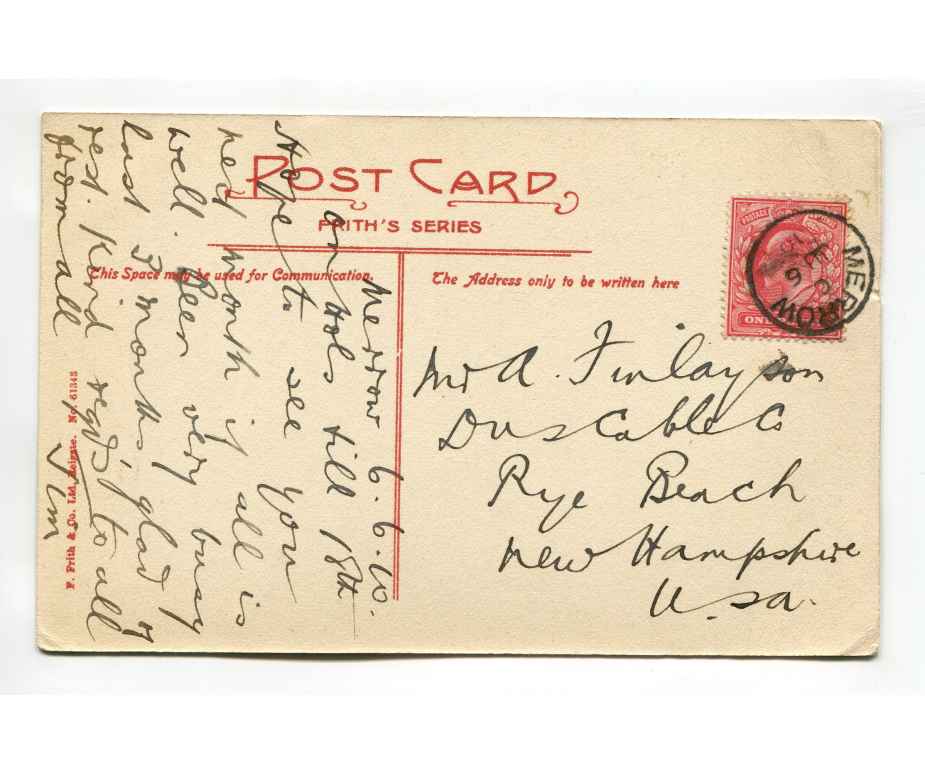 POST CARD
FRITH'S SERIES
This Space may be used for Communication.
The Address only to be written here
Merrow 6.6.10.
on hols till 18th
Hope to see you
next month if all is
well. Been very busy
last 3 months, glad of
rest. Kind regds to all
from all Jim
F. Frith & Co. Ltd., Reigate. No. 61343
Mr A. Finlayson
D U S Cable Co
Rye Beach
New Hampshire
U.S.A.
POSTAGE
ONE
MERROW
JE 6